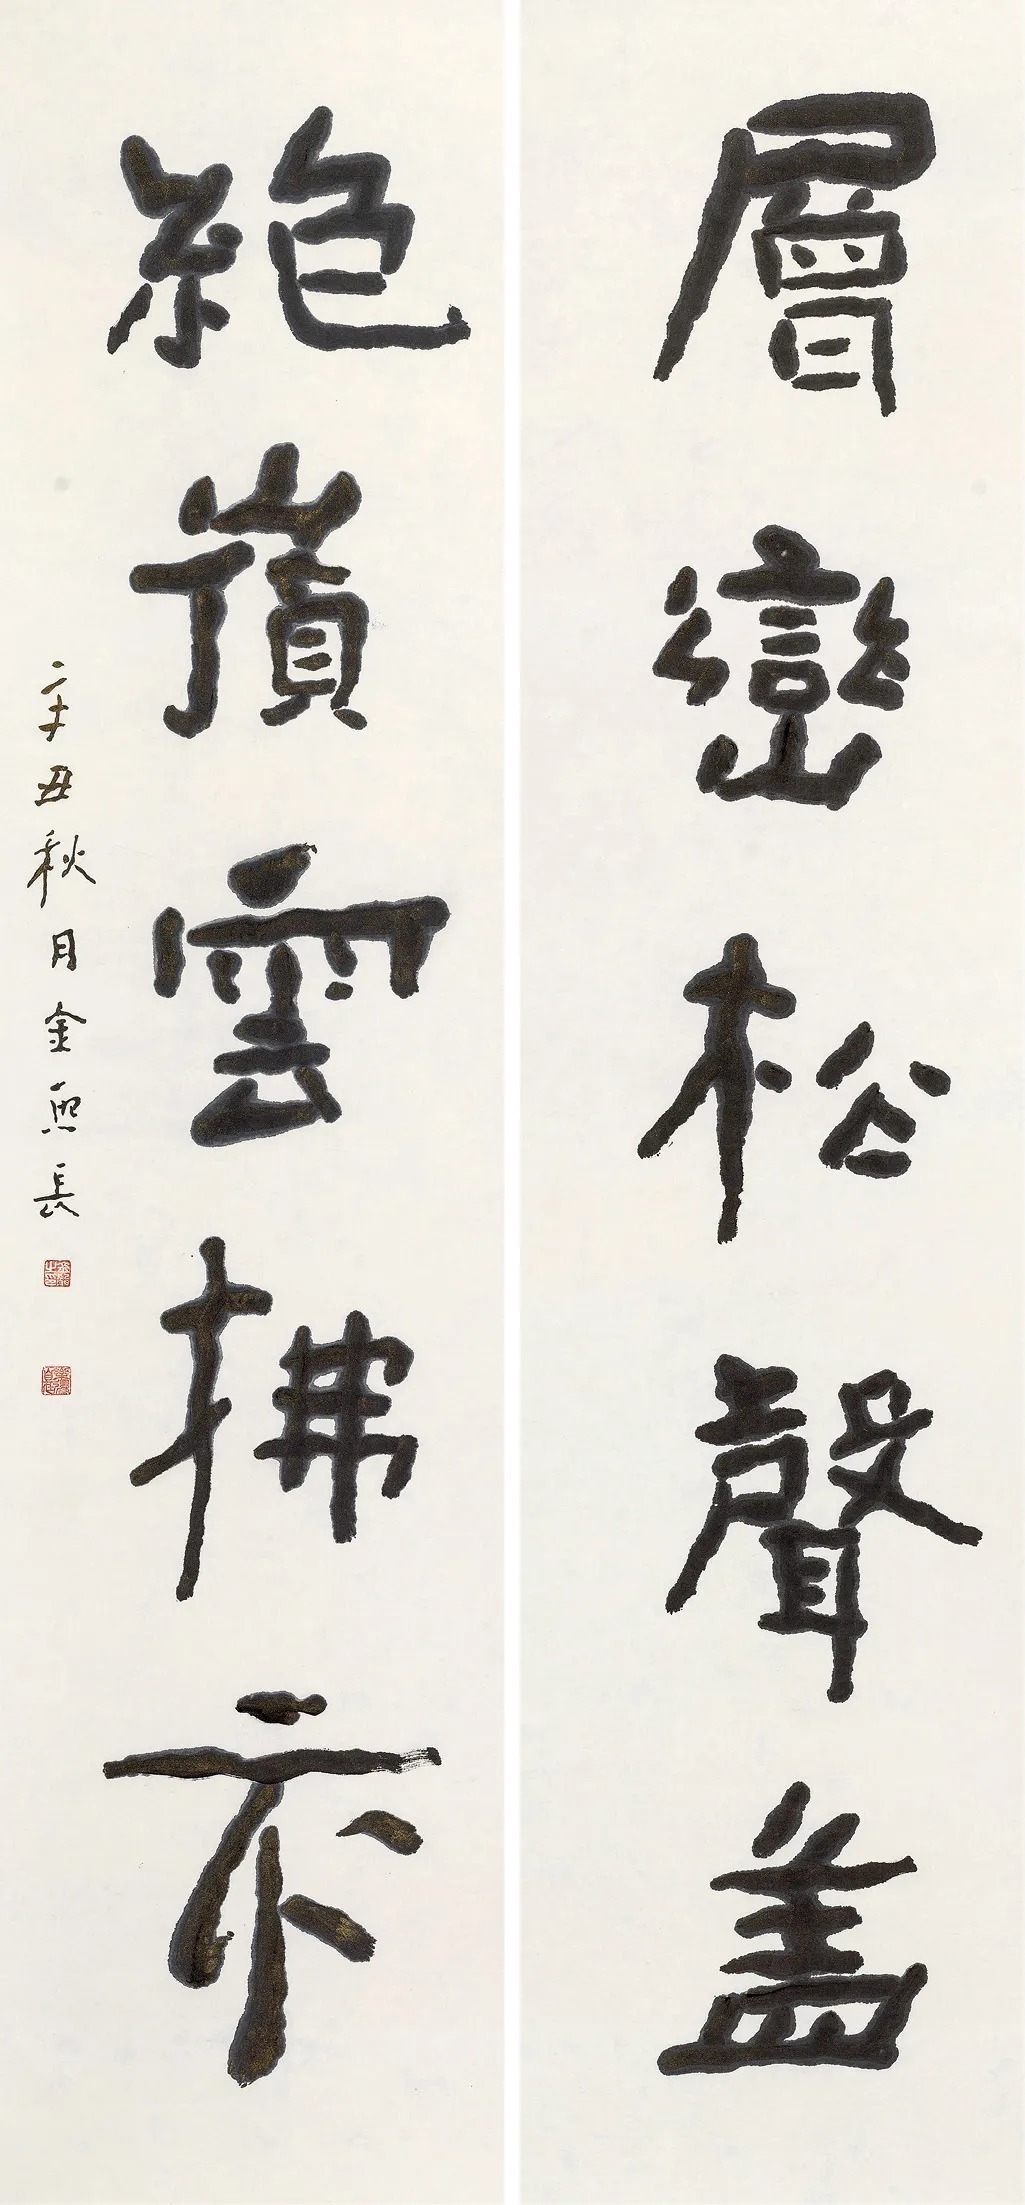 層巒松聲盖
絶嶺雲拂衣
辛丑秋月金熙長